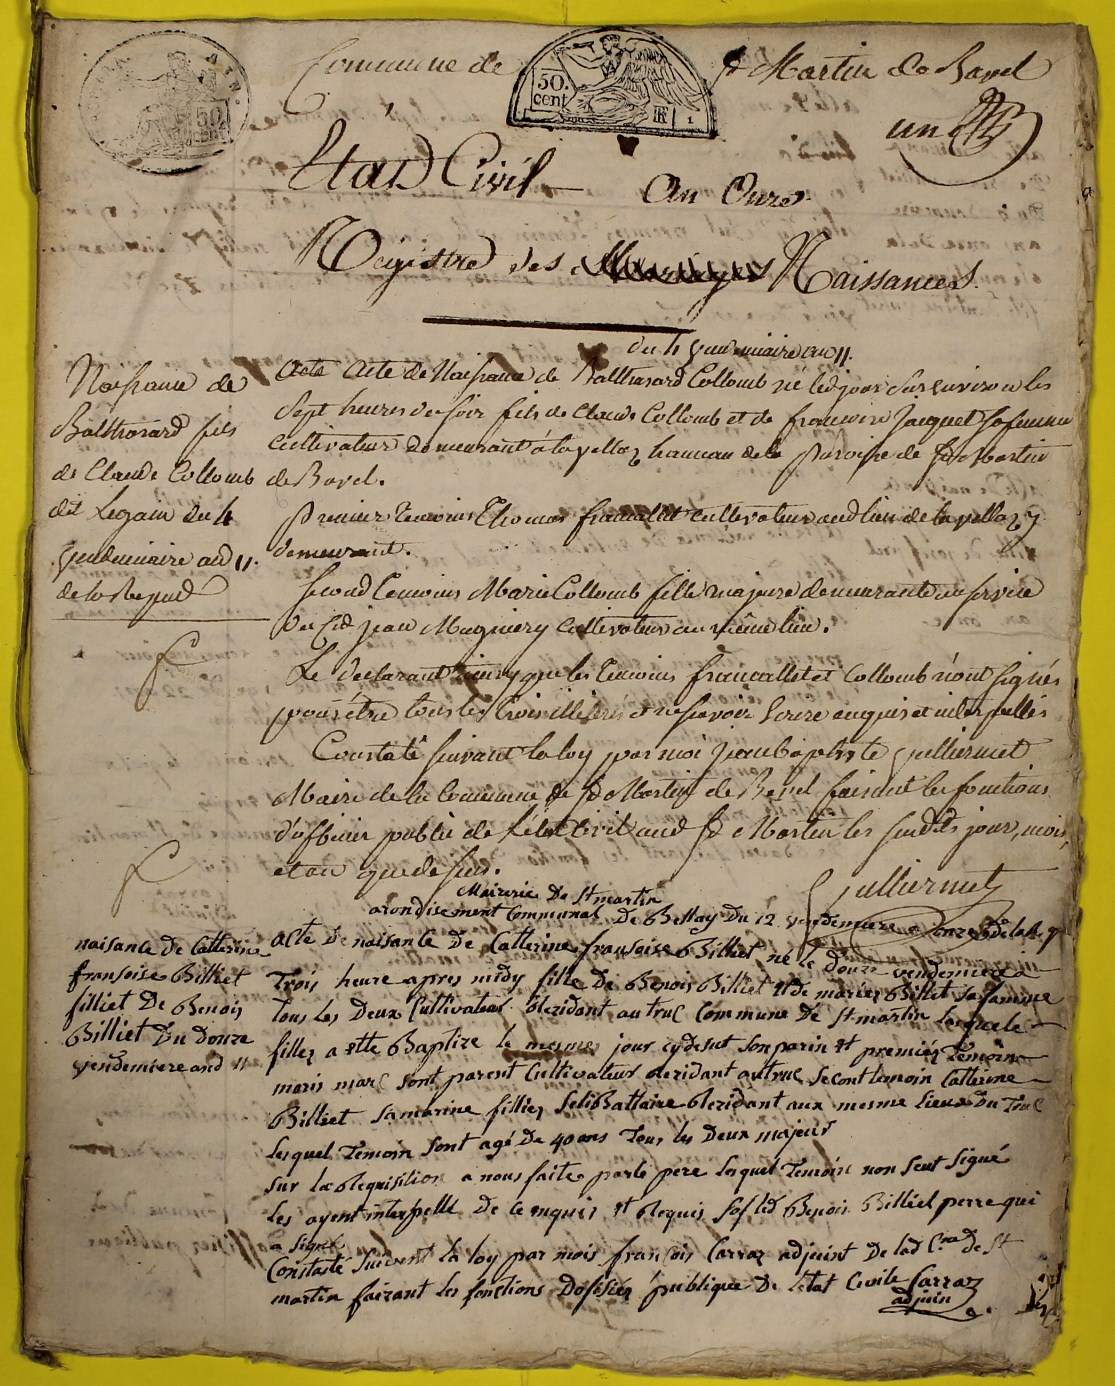 Commune de St Martin de Bavel
50. cent
un
Etat Civil An Onze
Registre des Mariages Naissances
du 4 vendemiaire an 11.
Naissance de
Balthazard fils
de Claude Collomb
dit Legain du 4
vendemiaire an 11.
de la Repud
acte Acte de Naissance de Balthazard Collomb né led jour sur environ les
sept heures du soir fils de Claude Collomb et de francoise Jacquet sa femme
cultivateur demeurant à la vellaz hameau de la paroisse de St Martin
de Bavel.
premier temoins Thomas francallet cultivateur aud lieu de la vellaz y
demeurant.
second temoins Marie Collomb fille majeure demeurante au service
du Cid jean Mugniery cultivateur au même lieu.
Le declarant que les temoins francallet et Collomb n'ont signés
pour être tous les trois illiterés et ne savoir ecrire enquis et interpellés
Constaté suivant la loy par moi jean baptiste Gulliermet
Maire de la Commune de St Martin de Bavel faisant les fonctions
d'officier public de l'état civil aud St Martin les susdits jour, mois,
et an que dessus.
Gulliermet
Mairerie De St martin
arondisement Communal De Bellay Du 12 vendemiere onze De la R
naisante De Catterine
fransoise Billiet
filliet De Benois
Billiet Du Douze
vendemiere and 11
acte De naisante De Catterine fransoise Billiet ne le douze vendemiere
Trois heure apres midy fille De Benois Billiet et de mariez Billet sa famme
Tous les Deux Cultivateur Rezidant au truc Commune De St martin laquele
fillez a ette Baptize le mesme jour cy desut son parin et premiez Temoin
maris marc sont parent Cultivateur Rezidant au truc second temoin Catterine
Billiet sa marine filliez Selibattaire Rezidant aux mesme Lieux Du Truc
lesquel Temoin sont agé De 40 ans Tous les Deux majeur
sur la Requisition a nous faite par le pere lesquel Temoin non seut signé
les ayent interpellé De ce enquis et Requis sof led Benois Billiet perre qui
a signé
Constaté suivent la loy par mois francois Carraz adjoint De lad Cne De St
martin faizant les fonctions Dofisiez publique De letat Civile Carraz
adjoin